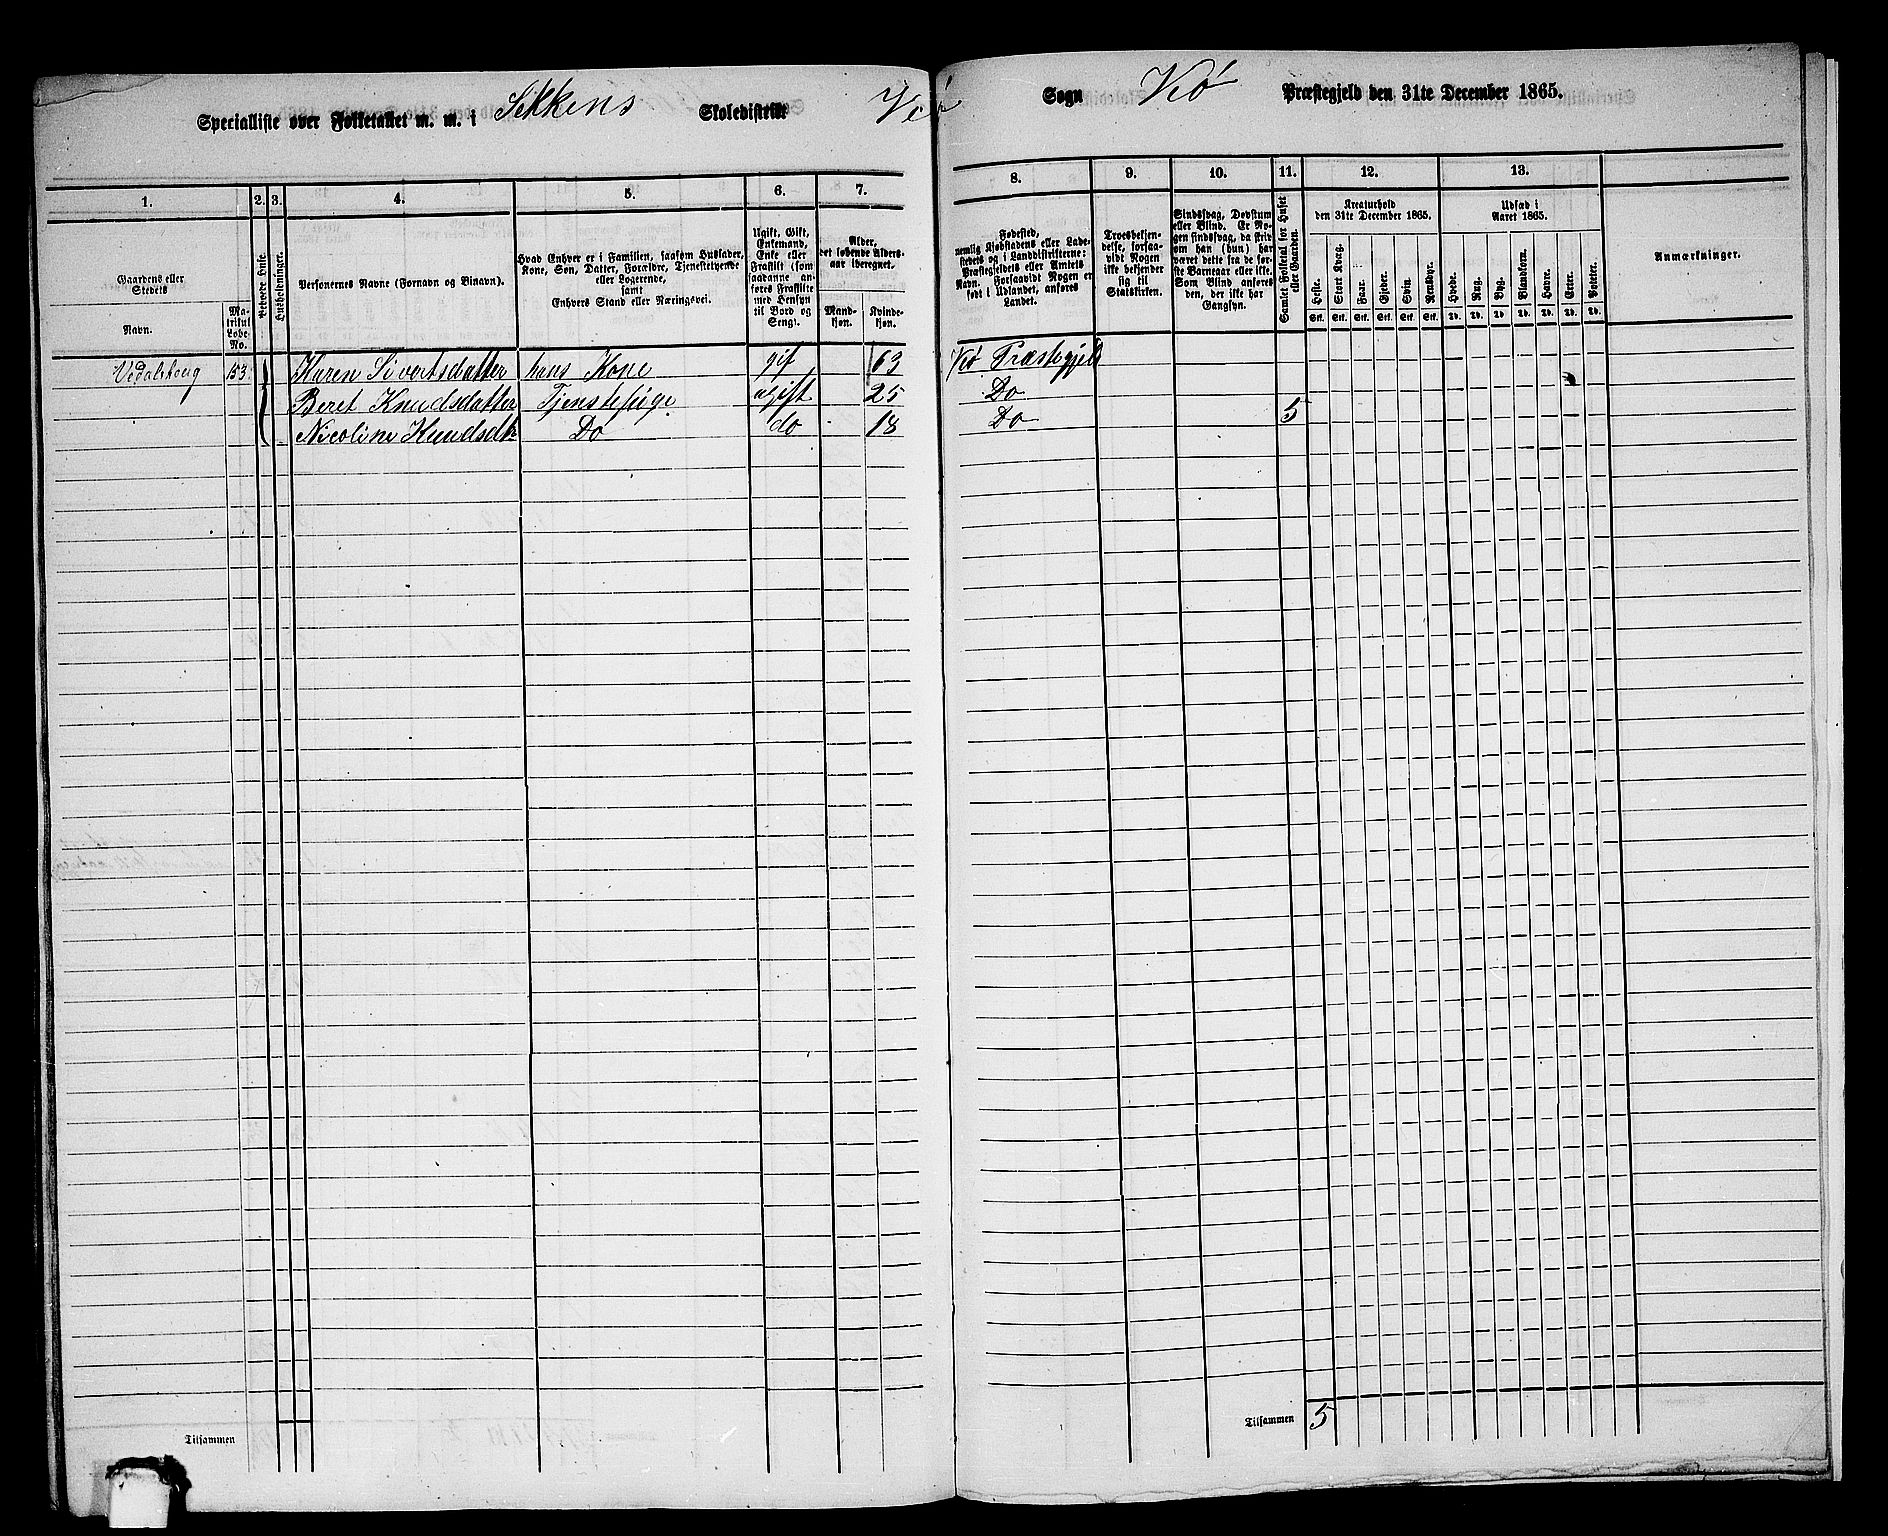 Specialliste over Folketallet m. m. i Sekkens Skoledistrikt Veø Sogn Veø Præstegjeld den 31te December 1865.
1. 2. 3. 4. 5. 6. 7. 8. 9. 10. 11. 12. 13.
Gaardens eller Stedets
Navn.
Matrikul Løbe-No.
Beboede Huse.
Husholdninger.
Personernes Navne (Fornavn og Binavn).
Hvad Enhver er i Familien, saasom Husfader, Kone, Søn, Datter, Forældre, Tjenestetyende eller Logerende, samt Enhvers Stand eller Næringsvei.
Ugift, Gift, Enkemand, Enke eller Fraskilt (som saadanne anføres Fraskilte med Hensyn til Bord og Seng).
Alder, det løbende Alders-aar iberegnet.
Mand-kjøn.
Kvinde-kjøn.
Fødested, nemlig Kjøbstadens eller Ladestedets og i Landdistrikterne: Præstegjeldets eller Amtets Navn. Forsaavidt Nogen er født i Udlandet, anføres Landet.
Troesbekjendelse, forsaavidt Nogen ikke bekjender sig til Statskirken.
Sindssvag, Døvstum eller Blind. Er Nogen sindssvag, da skriv om han (hun) har været dette fra de første Barneaar eller ikke. Som Blind anføres den, der ikke har Gangsyn.
Samlet Folketal for Huset eller Gaarden.
Kreaturhold den 31te December 1865.
Heste. Stort Kvæg. Faar. Gjeder. Svin. Rensdyr.
Stk. Stk. Stk. Stk. Stk. Stk.
Udsæd i Aaret 1865.
Hvede. Rug. Byg. Blandkorn. Havre. Erter. Poteter.
Td. Td. Td. Td. Td. Td. Td.
Anmærkninger.
153. Karen Sivertsdatter hans Kone gif 63 Veø Præstegjeld
Beret Knudsdatter Tjenestepige ugift 25 Do
Nicoline Knudsdtr Do do 18 Do 5
Tilsammen
Tilsammen 5